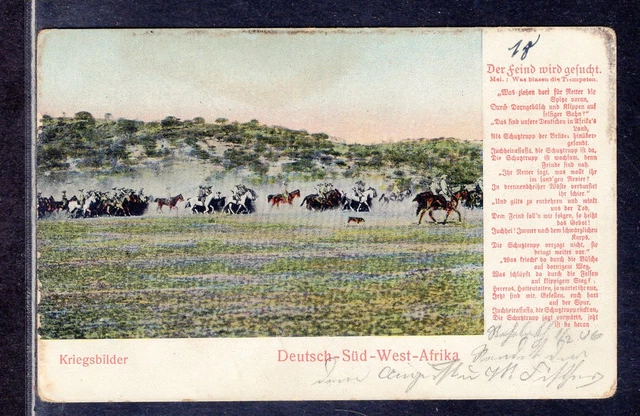 18
Der Feind wird gesucht.
Mel.: Was blasen die Trompeten.
„Was ziehen dort für Reiter die
Spitze voran,
Durch Dornge­büsch und Klippen auf
felsiger Bahn?"
„Das sind unsere Deutschen in Afrika's
Land,
Als Schutztrupp der Brüder hinüber-
gesandt.
Juchheirassassa, die Schutztrupp ist da,
Die Schutztrupp ist wachsam, dem
Feinde sind nah.
„Ihr Reiter sagt, was wollt ihr
im sand'gen Revier?
In brennendheißer Wüste verdurstet
ihr schier."
„Und gilts zu entbehren und winkt
uns der Tod,
Dem Feind soll'n wir folgen, so heißt
das Gebot!
Juchhei! Immer nach dem schwärzlichen
Korps,
Die Schutztrupp verzagt nicht, sie
dringt weiter vor."
„Was kriecht da durch die Büsche
auf dornigem Weg,
Was schlüpft da durch die Felsen
auf klippigem Steig?
Hereros, Hottentotten, so wartet ihr nur,
Jetzt sind wir Gesellen, euch hart
auf der Spur.
Juchheirassassa, die Schutztruppe rücken,
Die Schutztrupp jagt vorwärts, jetzt
ist sie daran
Kriegsbilder
Deutsch-Süd-West-Afrika
06
dem August